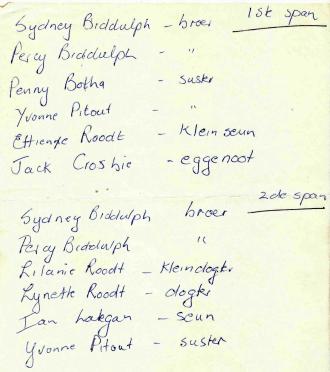 Sydney Biddulph - broer 1ste span
Percy Biddulph - "
Penny Botha - suster
Yvonne Pitout - "
Ettienne Roodt - Kleinseun
Jack Crosbie - eggenoot
Sydney Biddulph broer 2de span
Percy Biddulph "
Lilanie Roodt - Kleindogter
Lynette Roodt - dogter
Ian - seun
Yvonne Pitout - suster